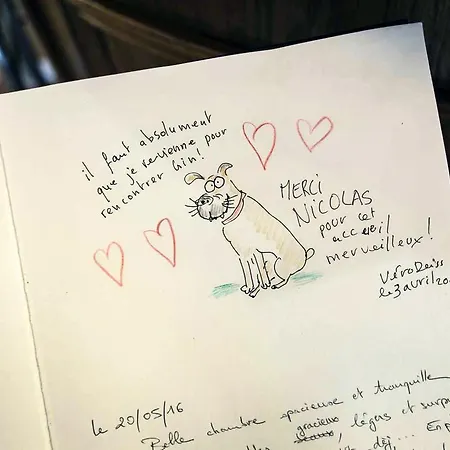 il faut absolument
que je revienne pour
rencontrer Gin!
MERCI
NICOLAS
pour cet
accueil
merveilleux!
Véro Deiss
le 3 avril 20
le 20/05/16
Belle chambre spacieuse et tranquille
gracieux, légers et surpr
déj... En p